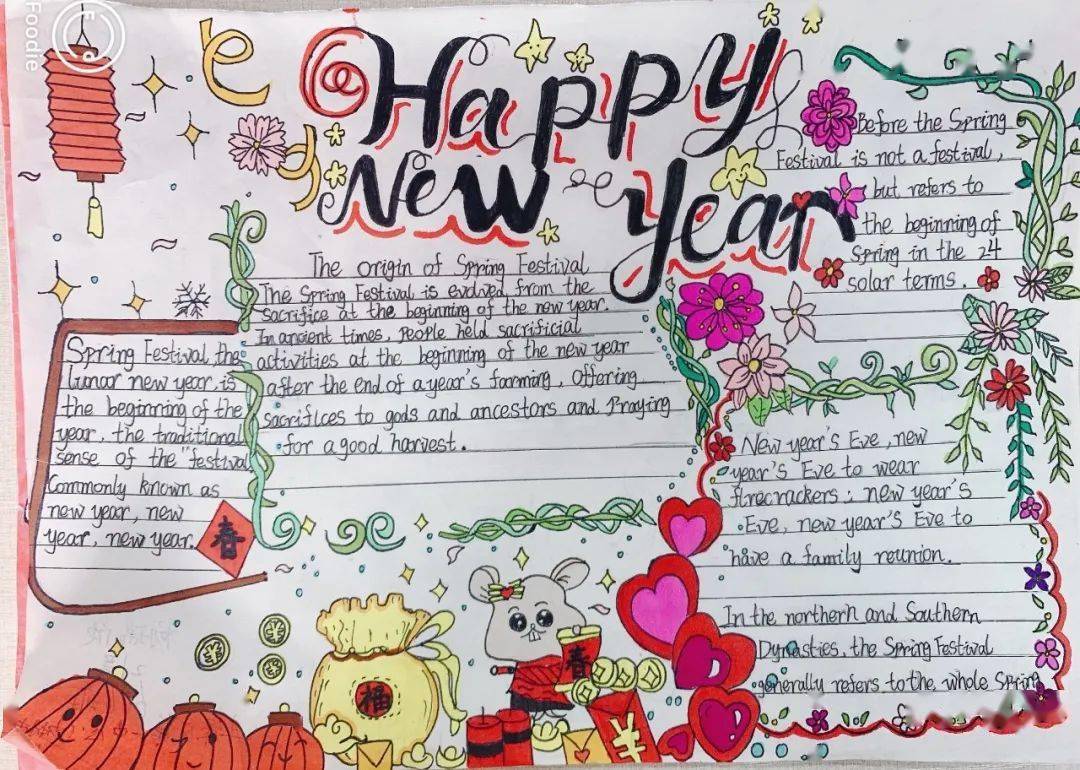 Foodie
Happy
New Year
Before the Spring
Festival is not a festival,
but refers to
the beginning of
Spring in the 24
solar terms.
The origin of Spring Festival
The Spring Festival is evolved from the
sacrifice at the beginning of the new year.
In ancient times, People held sacrificial
activities at the beginning of the new year
after the end of a year's farming, offering
sacrifices to gods and ancestors and Praying
for a good harvest.
Spring Festival, the
lunar new year, is
the beginning of the
year, the traditional
sense of the "festival
Commonly known as
new year, new
year, new year.
春
New year's Eve, new
year's Eve to wear
firecrackers: new year's
Eve, new year's Eve to
have a family reunion.
In the northern and Southern
Dynasties, the Spring Festival
generally refers to the whole Spring
福
春
¥